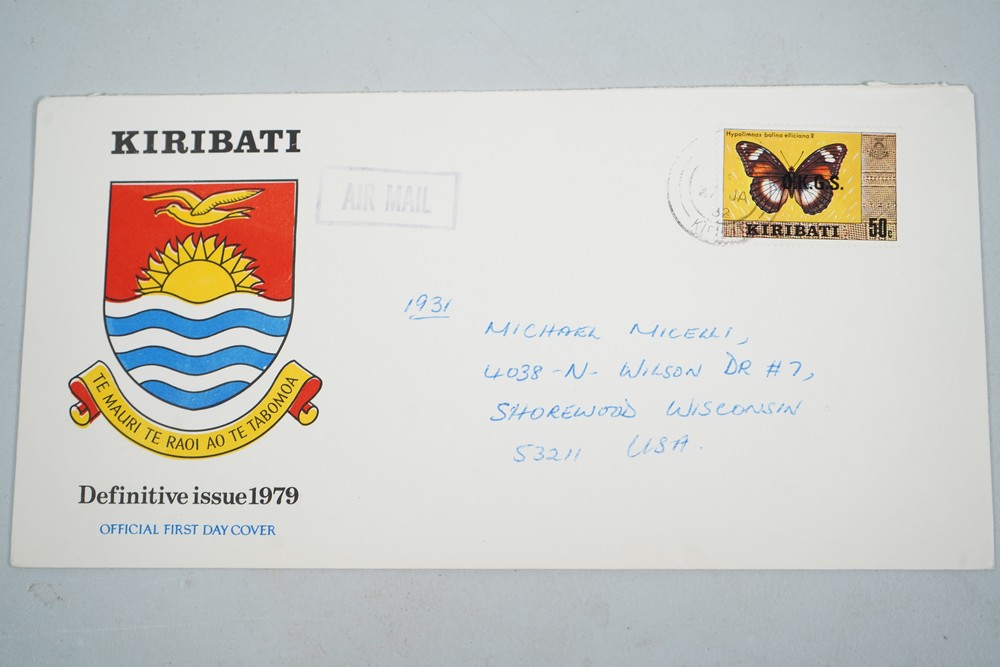 KIRIBATI
AIR MAIL
Hypolimnas bolina elliciana ♀
O.K.G.S.
KIRIBATI 50c
27 JA
82
1931
MICHAEL MICELLI,
4038-N- WILSON DR #7,
SHOREWOOD WISCONSIN
53211 USA.
TE MAURI TE RAOI AO TE TABOMOA
Definitive issue 1979
OFFICIAL FIRST DAY COVER